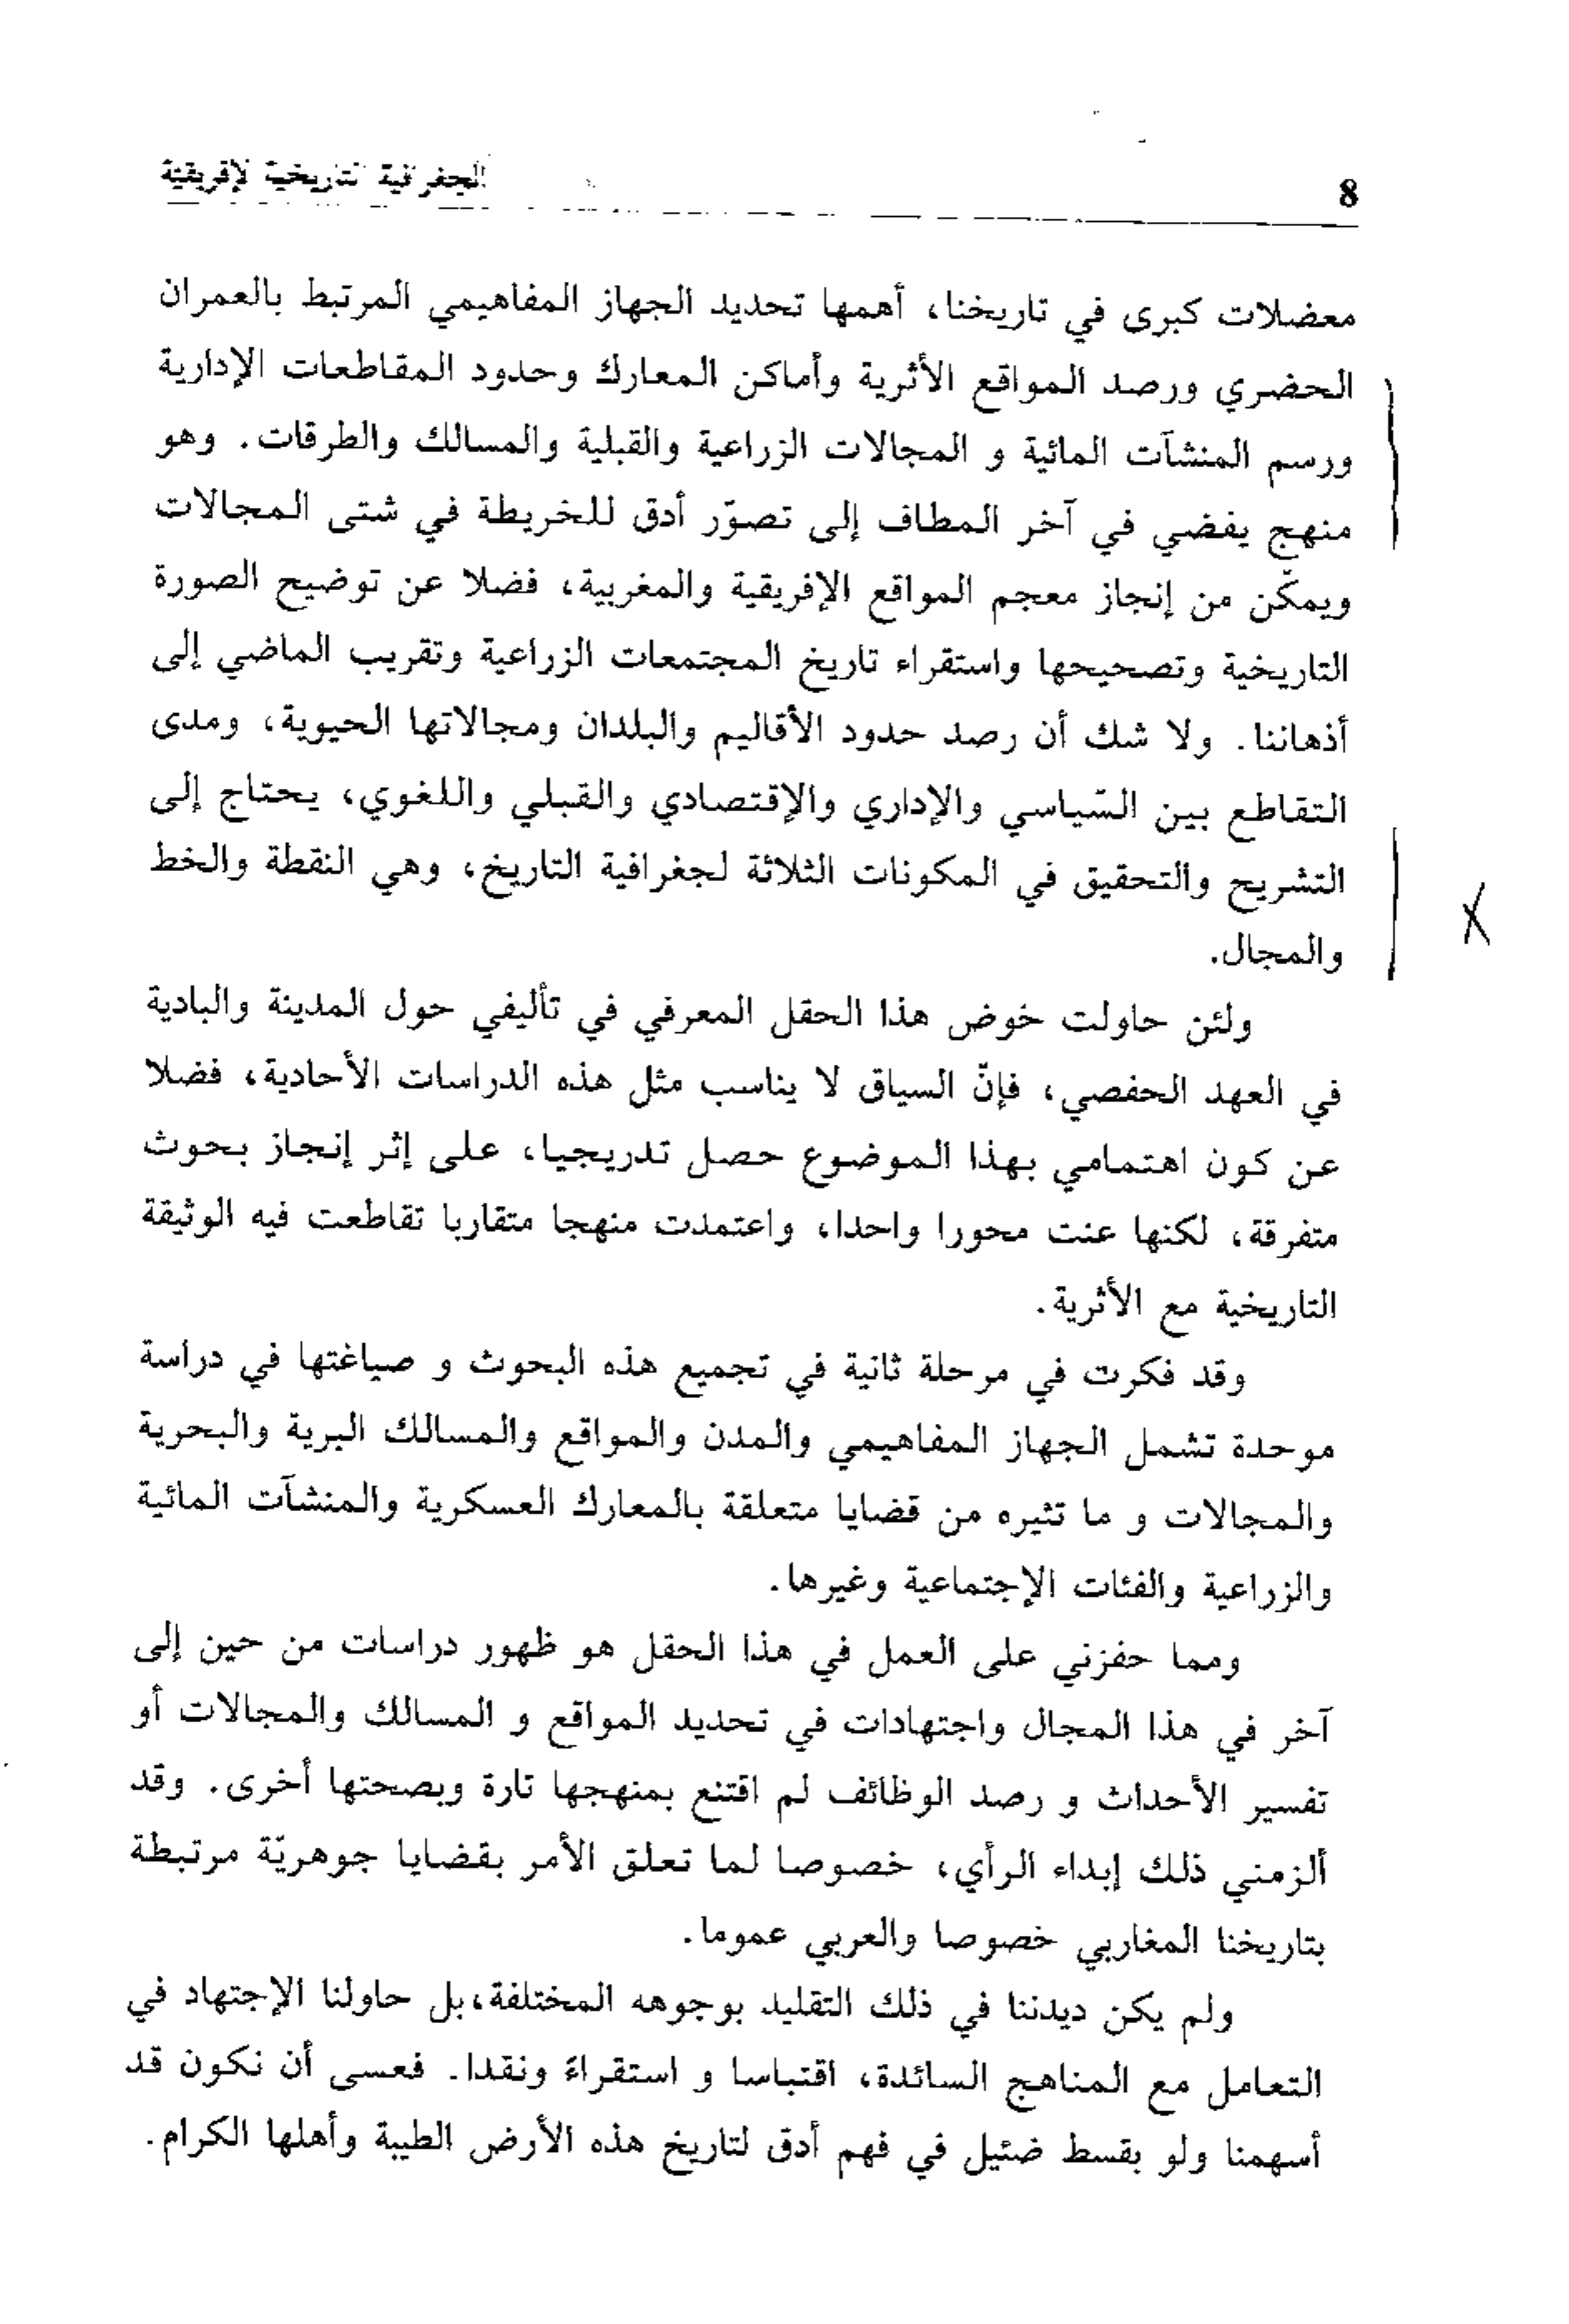 8
الجغرافية التاريخية لإفريقية
معضلات كبرى في تاريخنا، أهمها تحديد الجهاز المفاهيمي المرتبط بالعمران
الحضري ورصد المواقع الأثرية وأماكن المعارك وحدود المقاطعات الإدارية
ورسم المنشآت المائية و المجالات الزراعية والقبلية والمسالك والطرقات. وهو
منهج يفضي في آخر المطاف إلى تصوّر أدق للخريطة في شتى المجالات
ويمكّن من إنجاز معجم المواقع الإفريقية والمغربية، فضلا عن توضيح الصورة
التاريخية وتصحيحها واستقراء تاريخ المجتمعات الزراعية وتقريب الماضي إلى
أذهاننا. ولا شك أن رصد حدود الأقاليم والبلدان ومجالاتها الحيوية، ومدى
التقاطع بين السّياسي والإداري والإقتصادي والقبلي واللغوي، يحتاج إلى
التشريح والتحقيق في المكونات الثلاثة لجغرافية التاريخ، وهي النقطة والخط
والمجال.
ولئن حاولت خوض هذا الحقل المعرفي في تأليفي حول المدينة والبادية
في العهد الحفصي، فإنّ السياق لا يناسب مثل هذه الدراسات الأحادية، فضلا
عن كون اهتمامي بهذا الموضوع حصل تدريجيا، على إثر إنجاز بحوث
متفرقة، لكنها عنت محورا واحدا، واعتمدت منهجا متقاربا تقاطعت فيه الوثيقة
التاريخية مع الأثرية.
وقد فكرت في مرحلة ثانية في تجميع هذه البحوث و صياغتها في دراسة
موحدة تشمل الجهاز المفاهيمي والمدن والمواقع والمسالك البرية والبحرية
والمجالات و ما تثيره من قضايا متعلقة بالمعارك العسكرية والمنشآت المائية
والزراعية والفئات الإجتماعية وغيرها.
ومما حفزني على العمل في هذا الحقل هو ظهور دراسات من حين إلى
آخر في هذا المجال واجتهادات في تحديد المواقع و المسالك والمجالات أو
تفسير الأحداث و رصد الوظائف لم اقتنع بمنهجها تارة وبصحتها أخرى. وقد
ألزمني ذلك إبداء الرأي، خصوصا لما تعلق الأمر بقضايا جوهريّة مرتبطة
بتاريخنا المغاربي خصوصا والعربي عموما.
ولم يكن ديدننا في ذلك التقليد بوجوهه المختلفة،بل حاولنا الإجتهاد في
التعامل مع المناهج السائدة، اقتباسا و استقراءً ونقدا. فعسى أن نكون قد
أسهمنا ولو بقسط ضئيل في فهم أدق لتاريخ هذه الأرض الطيبة وأهلها الكرام.